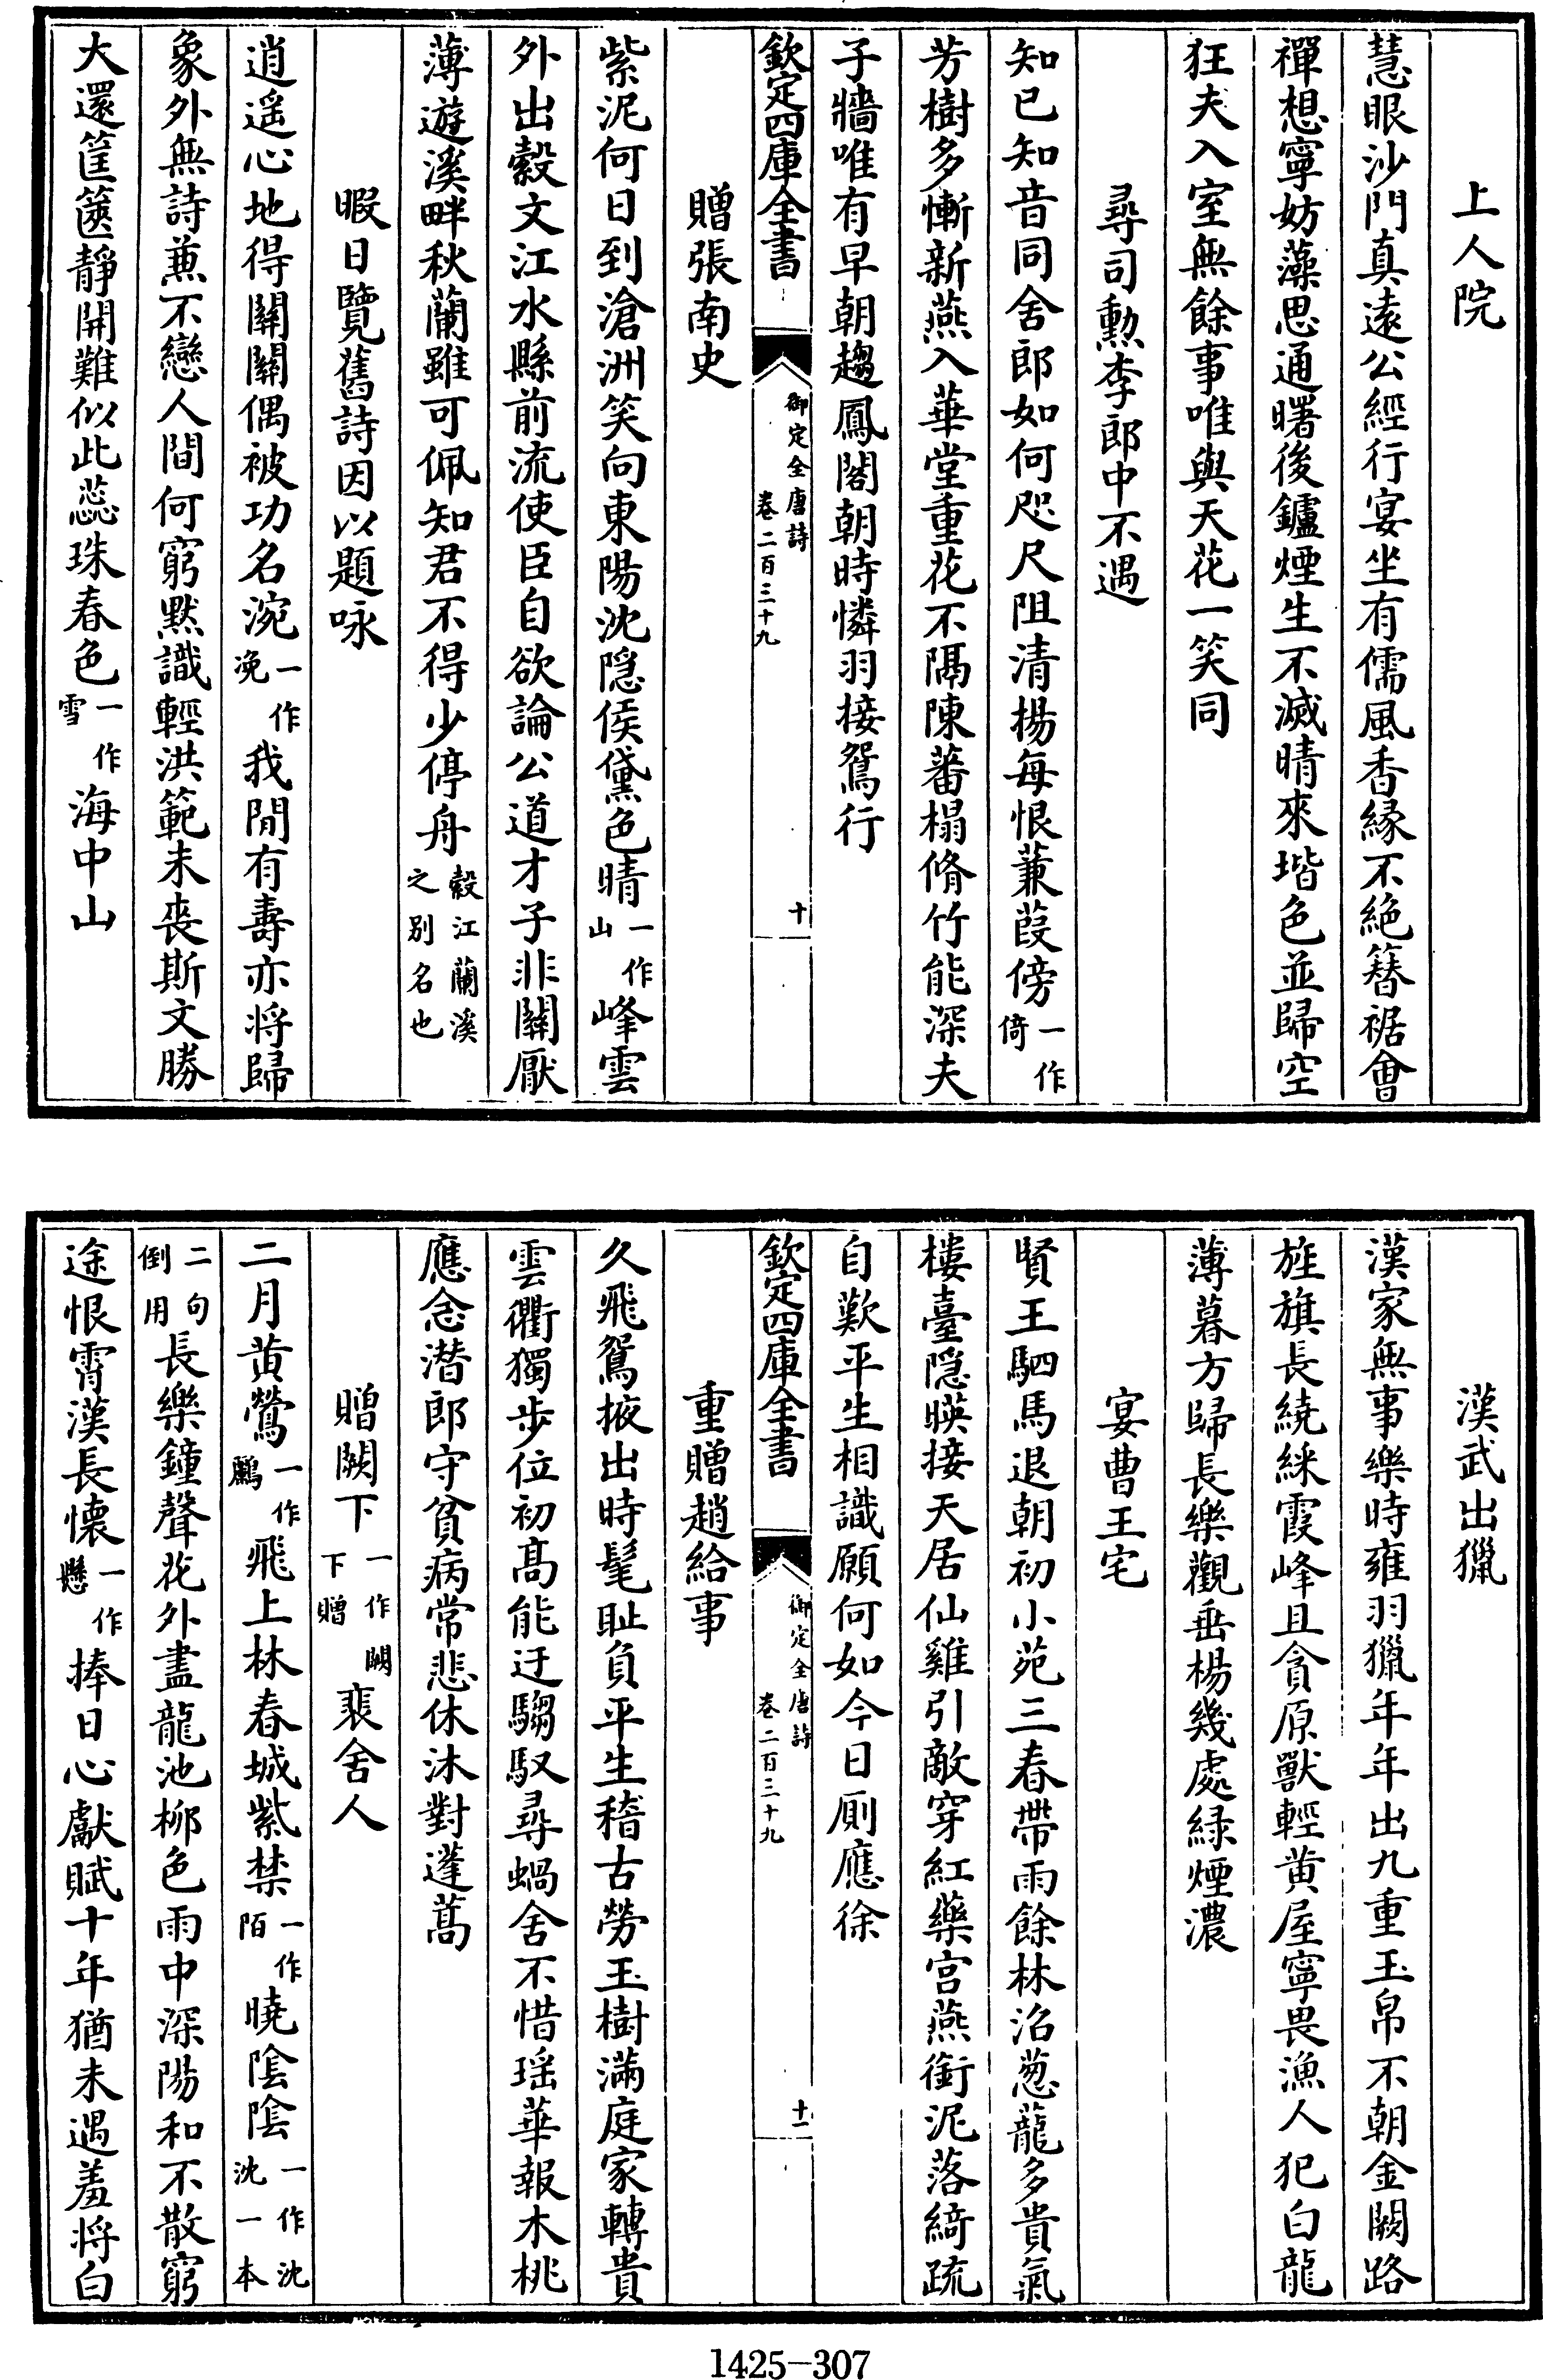 上人院
慧眼沙門真遠公經行宴坐有儒風香縁不絶簮裾會
禪想寧妨藻思通曙後鑪煙生不滅晴來堦色並歸空
狂夫入室無餘事唯與天花一笑同
尋司勲李郎中不遇
知已知音同舍郎如何咫尺阻清揚每恨蒹葭傍一作倚
芳樹多慚新燕入華堂重花不隔陳蕃榻脩竹能深夫
子牆唯有早朝趨鳳閣朝時憐羽接鴛行
欽定四庫全書
御定全唐詩
卷二百三十九
十
贈張南史
紫泥何日到滄洲笑向東陽沈隠侯黛色晴一作山峰雲
外出縠文江水縣前流使臣自欲論公道才子非關厭
薄遊溪畔秋蘭雖可佩知君不得少停舟縠江蘭溪之别名也
暇日覽舊詩因以題咏
逍遥心地得關關偶被功名涴一作浼我閒有壽亦将歸
象外無詩兼不戀人間何窮黙識輕洪範未喪斯文勝
大還筐篋靜開難似此蕊珠春色一作雪海中山
漢武出獵
漢家無事樂時雍羽獵年年出九重玉帛不朝金闕路
旌旗長繞綵霞峰且貪原獸輕黄屋寧畏漁人犯白龍
薄暮方歸長樂觀垂楊幾處緑煙濃
宴曹王宅
賢王駟馬退朝初小苑三春帶雨餘林沼葱蘢多貴氣
樓臺隠暎接天居仙雞引敵穿紅藥宫燕銜泥落綺疏
自歎平生相識願何如今日厠應徐
欽定四庫全書
御定全唐詩
卷二百三十九
十一
重贈趙給事
久飛鴛掖出時髦耻負平生稽古勞玉樹滿庭家轉貴
雲衢獨步位初髙能迂騶馭尋蝸舍不惜瑶華報木桃
應念潛郎守貧病常悲休沐對蓬蒿
贈闕下一作闕下贈裴舍人
二月黄鶯一作鸝飛上林春城紫禁一作陌曉陰陰一作沈沈一本
二句倒用長樂鐘聲花外盡龍池栁色雨中深陽和不散窮
途恨霄漢長懐一作懸捧日心獻賦十年猶未遇羞将白
1425—307